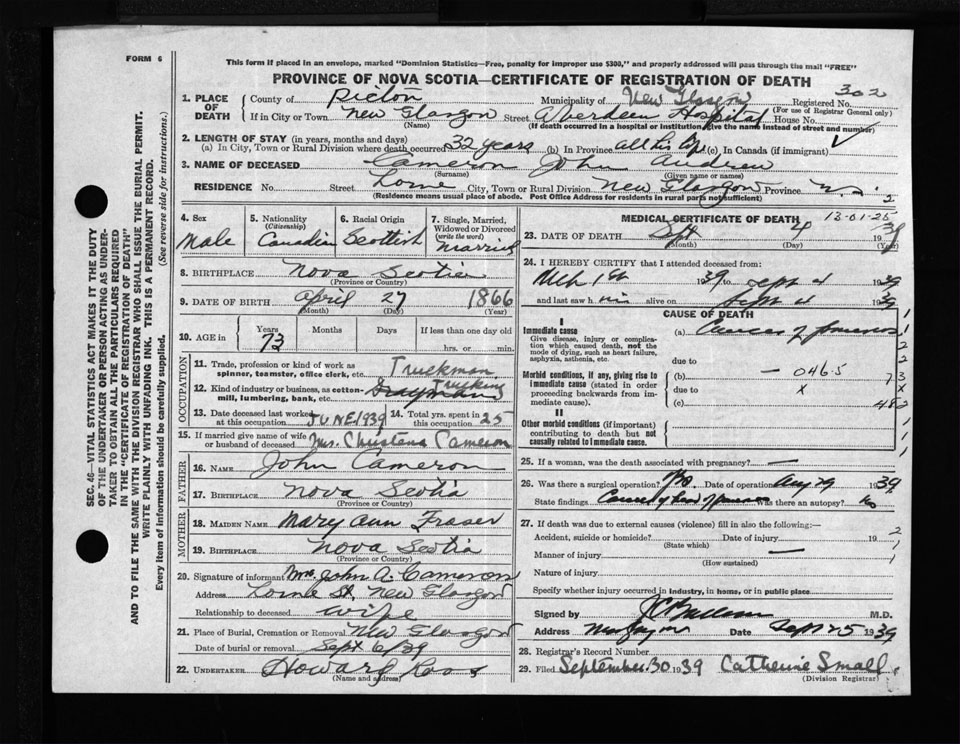 FORM 6
This form if placed in an envelope, marked "Dominion Statistics—Free, penalty for improper use $300," and properly addressed will pass through the mail "FREE"
PROVINCE OF NOVA SCOTIA—CERTIFICATE OF REGISTRATION OF DEATH
302
SEC. 46—VITAL STATISTICS ACT MAKES IT THE DUTY
OF THE UNDERTAKER OR PERSON ACTING AS UNDER-
TAKER TO OBTAIN ALL THE PARTICULARS REQUIRED
IN THE "CERTIFICATE OF REGISTRATION OF DEATH"
AND TO FILE THE SAME WITH THE DIVISION REGISTRAR WHO SHALL ISSUE THE BURIAL PERMIT.
WRITE PLAINLY WITH UNFADING INK. THIS IS A PERMANENT RECORD.
Every item of information should be carefully supplied. (See reverse side for instructions.)
1. PLACE OF DEATH
County of Pictou Municipality of New Glasgow Registered No.
(For use of Registrar General only)
If in City or Town New Glasgow Street Aberdeen Hospital House No.
(Name) (If death occurred in a hospital or institution, give the name instead of street and number)
2. LENGTH OF STAY (in years, months and days)
(a) In City, Town or Rural Division where death occurred 32 years (b) In Province all his life (c) In Canada (if immigrant)
3. NAME OF DECEASED Cameron John Andrew
(Surname) (Given name or names)
RESIDENCE No. Street Lorne City, Town or Rural Division New Glasgow Province N.S.
(Residence means usual place of abode. Post Office Address for residents in rural parts not sufficient)
4. Sex Male
5. Nationality (Citizenship) Canadian
6. Racial Origin Scottish
7. Single, Married, Widowed or Divorced (write the word) Married
8. BIRTHPLACE Nova Scotia
(Province or Country)
9. DATE OF BIRTH April 27 1866
(Month) (Day) (Year)
10. AGE in Years 73 Months Days If less than one day old
hrs. or min.
OCCUPATION
11. Trade, profession or kind of work as spinner, teamster, office clerk, etc. Truckman
12. Kind of industry or business, as cotton-mill, lumbering, bank, etc. Trucking
13. Date deceased last worked at this occupation JUNE 1939
14. Total yrs. spent in this occupation 25
15. If married give name of wife or husband of deceased Mrs. Christena Cameron
FATHER
16. NAME John Cameron
17. BIRTHPLACE Nova Scotia
(Province or Country)
MOTHER
18. MAIDEN NAME Mary Ann Fraser
19. BIRTHPLACE Nova Scotia
(Province or Country)
20. Signature of informant Mrs. John A. Cameron
Address Lorne St. New Glasgow
Relationship to deceased wife
21. Place of Burial, Cremation or Removal New Glasgow
Date of burial or removal Sept 6/39
22. UNDERTAKER Howard Ross
(Name and address)
2
MEDICAL CERTIFICATE OF DEATH
13-01-25
23. DATE OF DEATH Sept 4 1939
(Month) (Day) (Year)
24. I HEREBY CERTIFY that I attended deceased from:
Mch 1st 1939 to Sept 4 1939
and last saw him alive on Sept 4 1939
CAUSE OF DEATH
I
Immediate cause (a) Cancer of pancreas
Give disease, injury or complication which caused death, not the mode of dying, such as heart failure, asphyxia, asthenia, etc.
due to
Morbid conditions, if any, giving rise to immediate cause (stated in order proceeding backwards from immediate cause).
(b) — 046.5
due to X
(c)
II
Other morbid conditions (if important) contributing to death but not causally related to immediate cause.
25. If a woman, was the death associated with pregnancy? —
26. Was there a surgical operation? Date of operation Aug 29 1939
State findings Cancer of head of pancreas Was there an autopsy? no
27. If death was due to external causes (violence) fill in also the following:—
Accident, suicide or homicide? Date of injury 19
(State which)
Manner of injury —
(How sustained)
Nature of injury
Specify whether injury occurred in industry, in home, or in public place
Signed by M.D.
Address Date Sept 25 1939
28. Registrar's Record Number
29. Filed September 30 1939 Catherine Small
(Division Registrar)